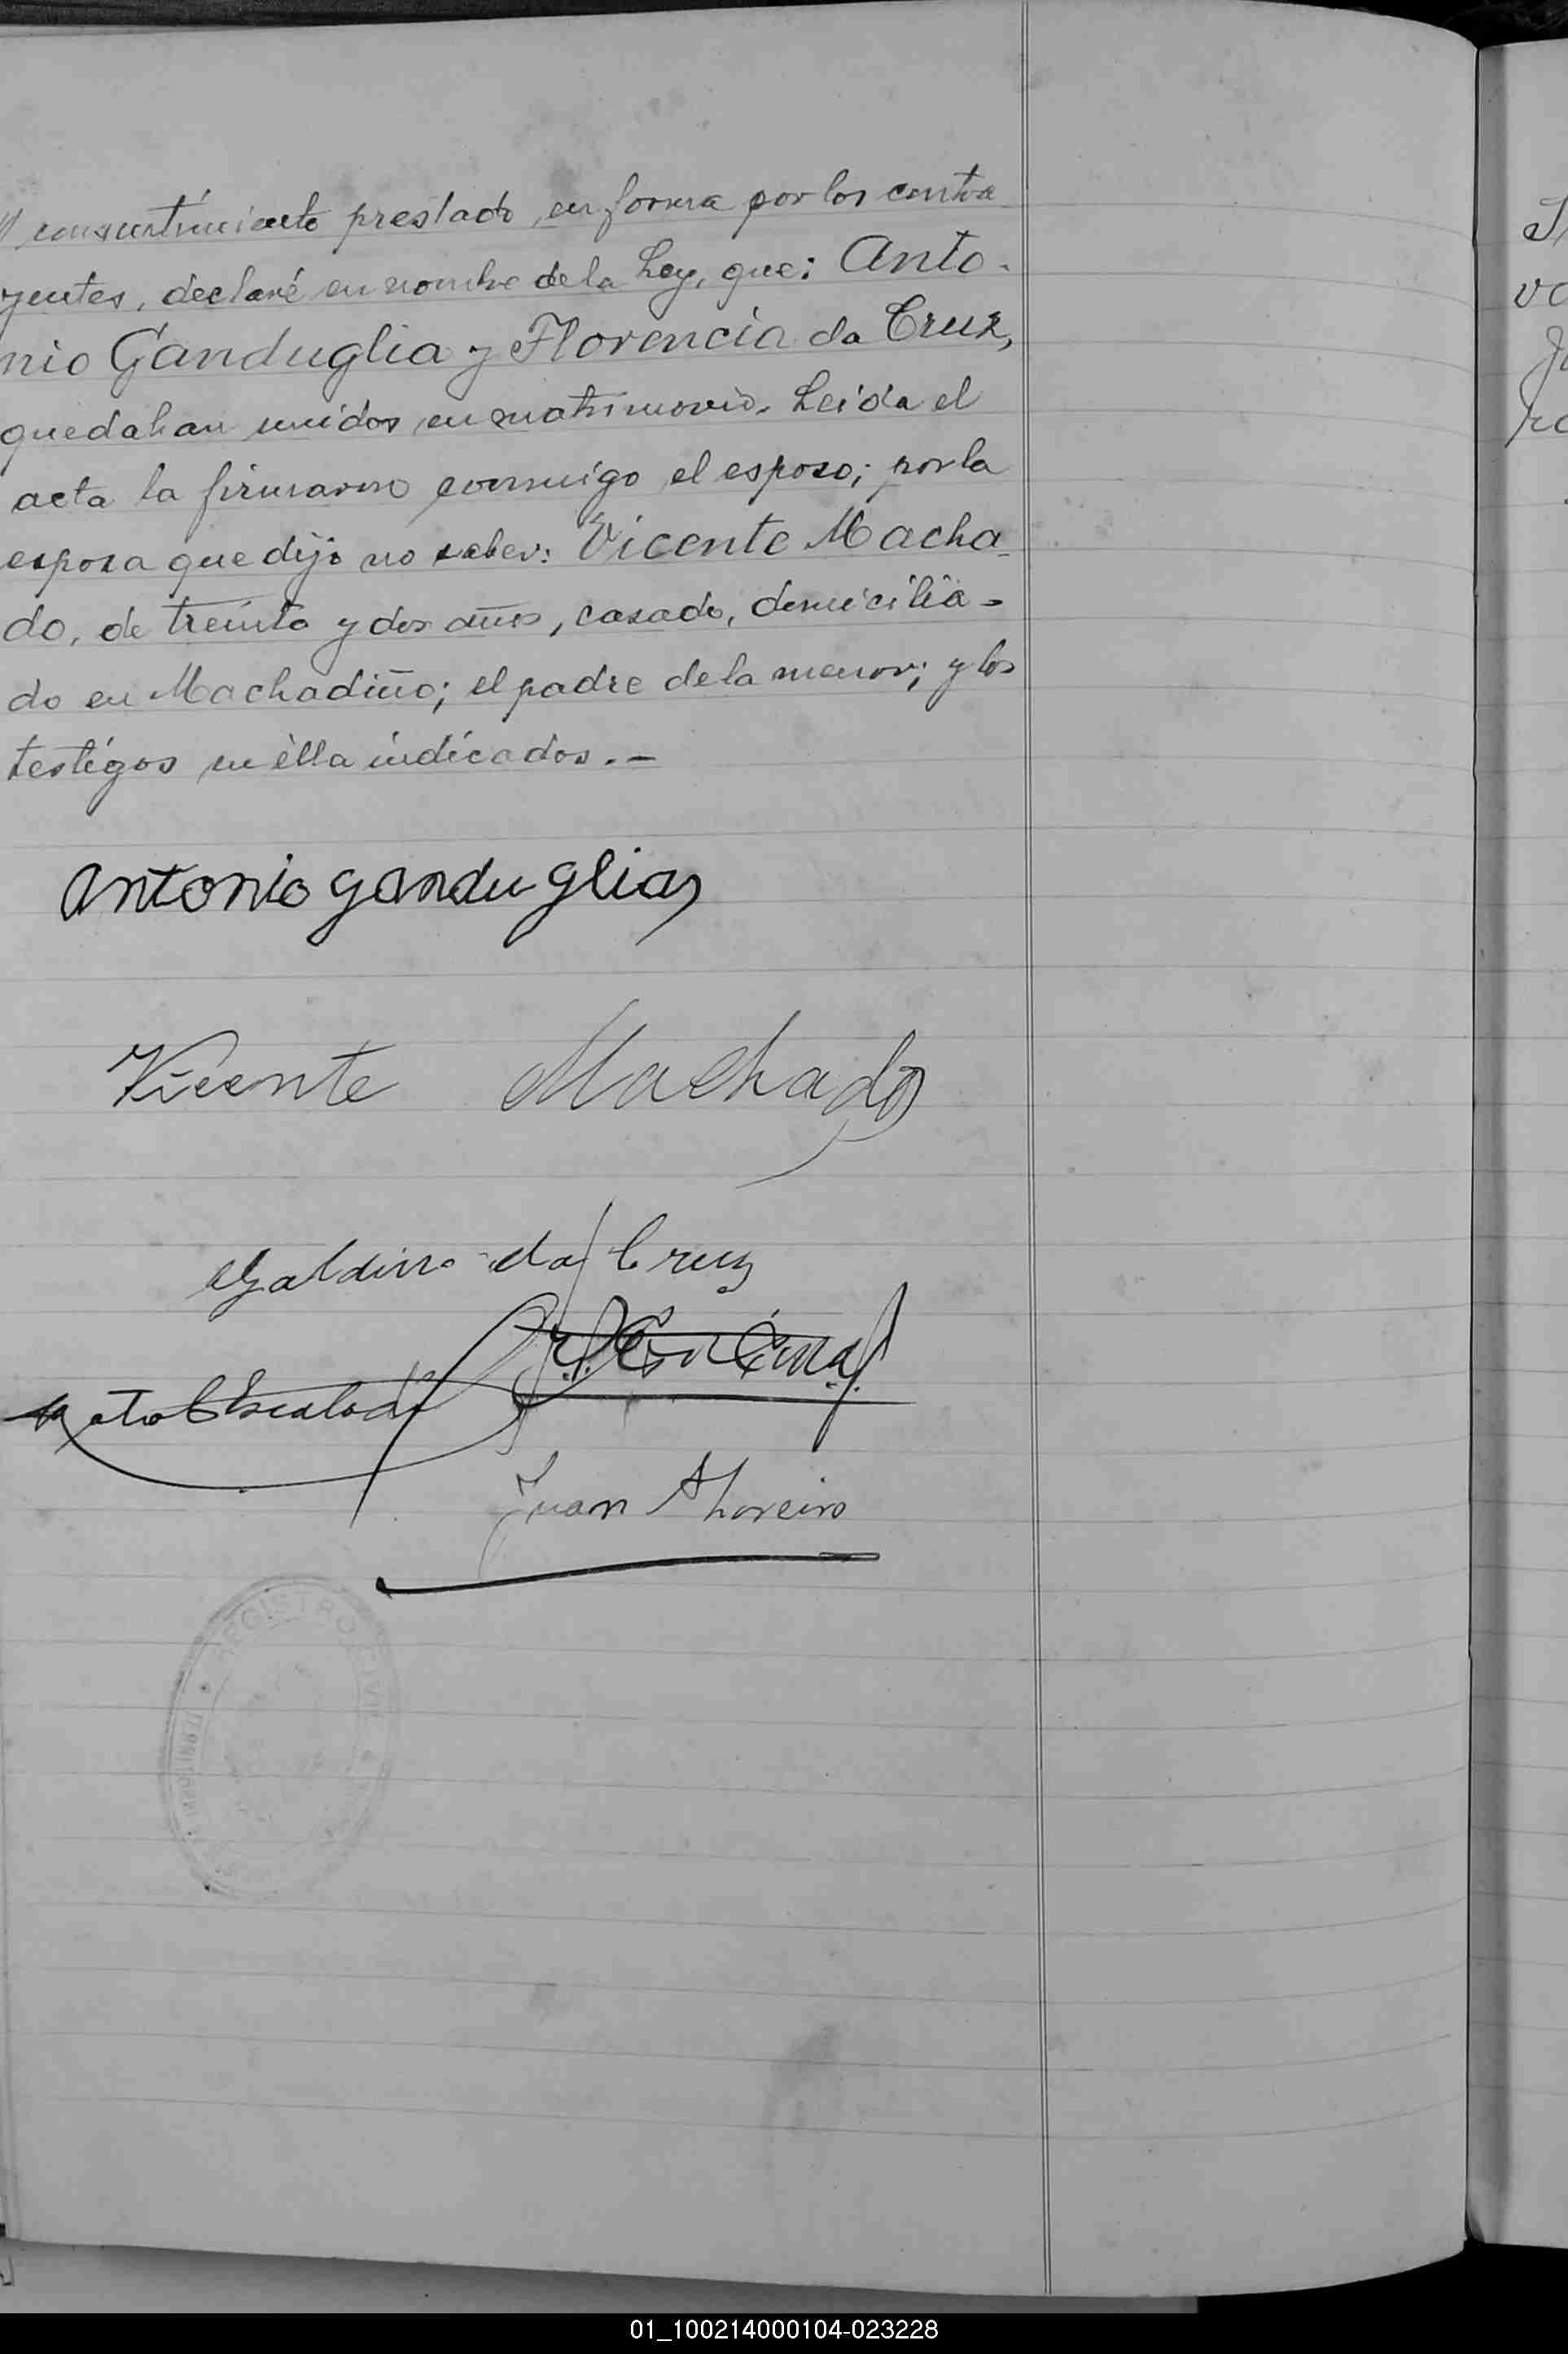 consentimiento prestado en forma por los contra-
yentes, declaré en nombre de la Ley, que: Anto-
nio Ganduglia y Florencia da Cruz,
quedaban unidos en matrimonio. Leida el
acta la firmaron conmigo el esposo; por la
esposa que dijo no saber: Vicente Macha-
do, de treinta y dos años, casado, domicilia-
do en Machadiño; el padre de la menor; y los
testigos en èlla indicados.-
Antonio Ganduglia
Vicente Machado
Galdino da Cruz
Juan
REGISTRO CIVIL
01_100214000104-023228